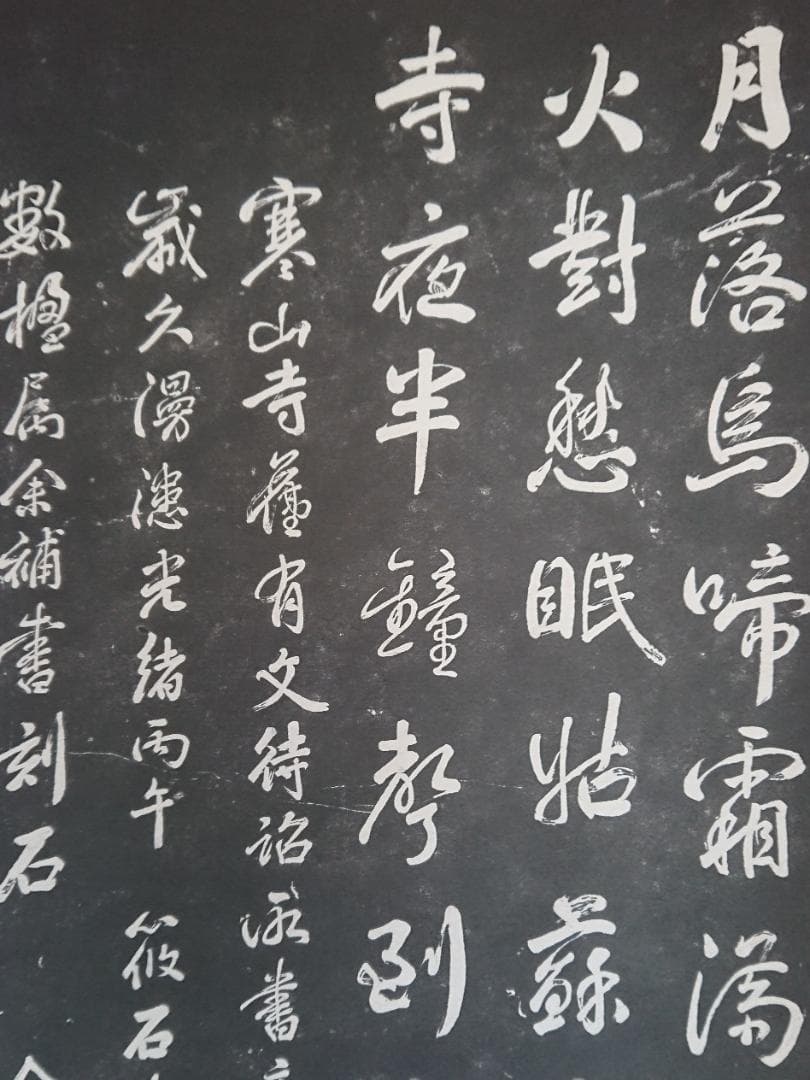 月落烏啼霜滿
火對愁眠姑蘇
寺夜半鐘聲到
寒山寺舊有文待詔所書
歲久漫漶光緒丙午 筱石
數楹属余補書刻石